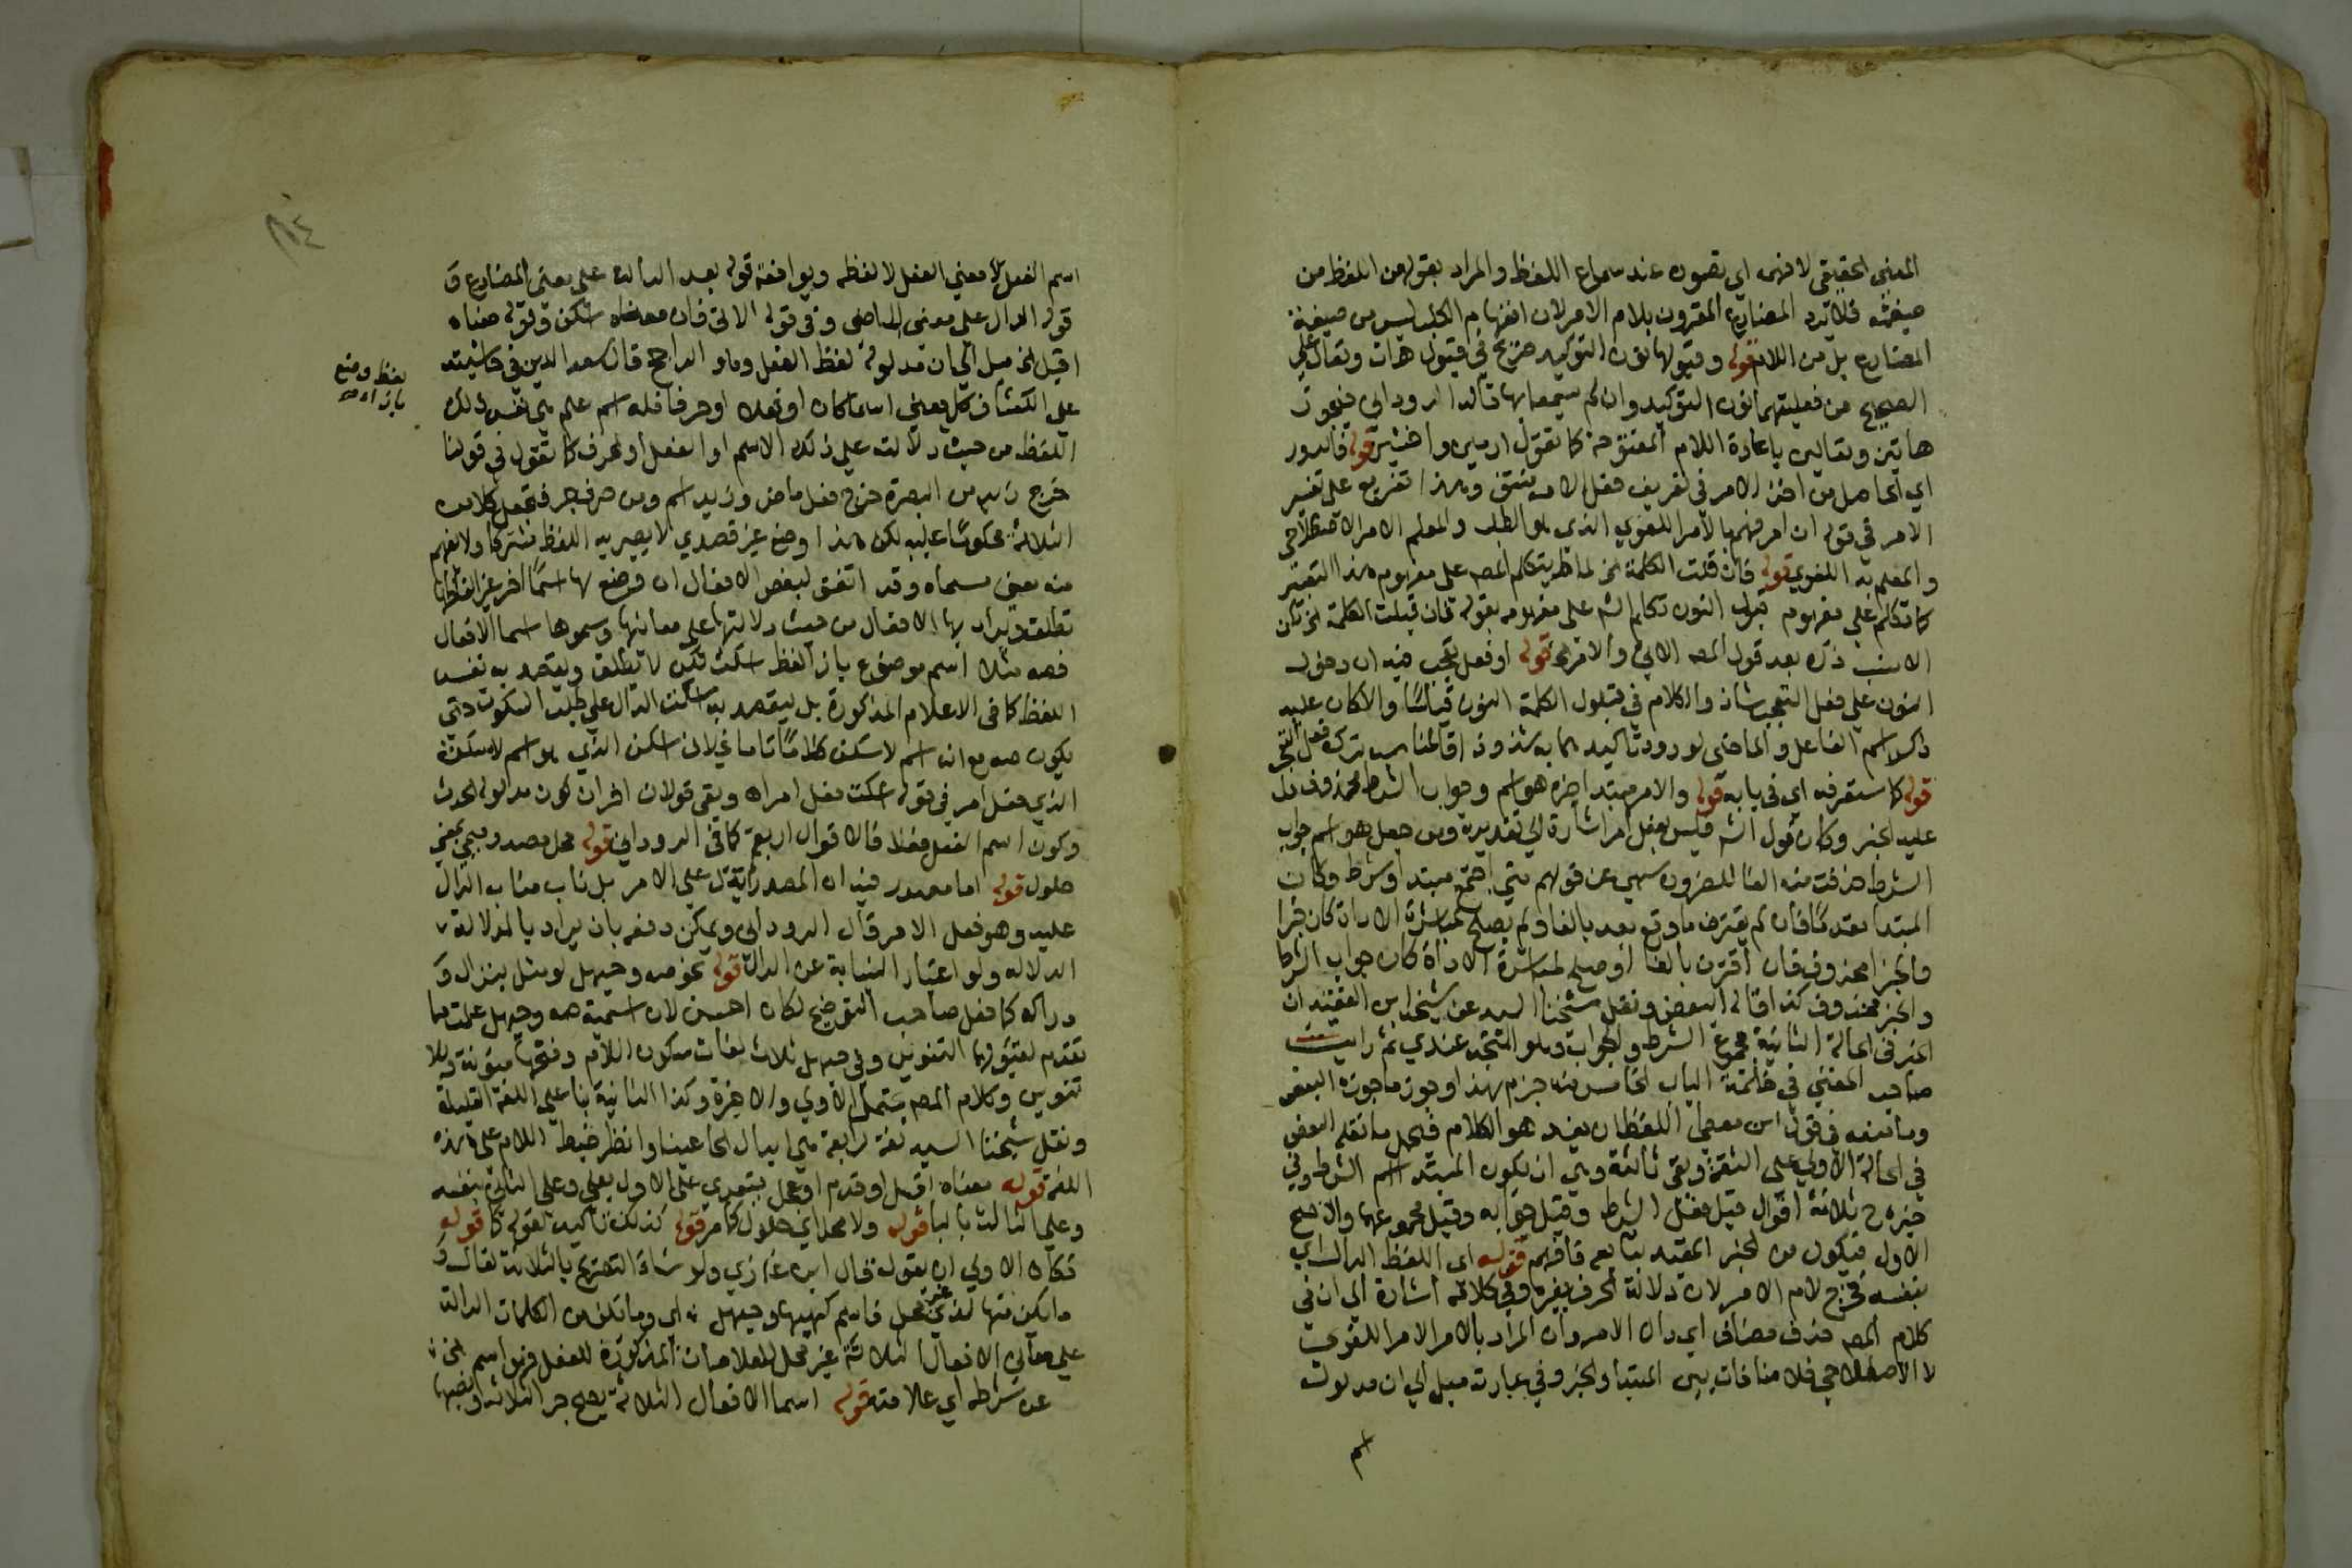 المعنى الحقيقي لا فهمه اي تصوره عند سماع اللفظ والمراد بقوله من اللفظ من
صيغته فلا يرد المضارع المقرون بلام الامر لان انفهام الطلب ليس من صيغة
المضارع بل من اللام قوله وقبولها نون التوكيد صريح في قبول هات وتعال على
الصحيح من فعليتهما نون التوكيد وان لم يسمعا بها قاله الروداني فيجوز
هاتين وتعالين باعادة اللام المفتوحة كما تقول ارمين واخشين قوله فالدور
اي الحاصل من اخذ الامر في تعريف فعل الامر منتف وهذا تفريع على تفسير
الامر في قوله ان امر فهم بالامر اللغوي الذي هو الطلب والمعلم الامر الاصطلاحي
والمعلم به اللغوي قوله فان قلت الكلمة الخ لما لم يتكلم المص على مفهوم هذا التعبير
كما تكلم على مفهوم قبول النون تكلم الش على مفهومه بقوله فان قبلت الكلمة الخ وكان
الانسب ذكره بعد قول المص الاتي والامر الخ قوله او فعل تعجب فيه ان دخول
النون على فعل التعجب شاذ والكلام في قبول الكلمة النون قياسا والا كان عليه
ذكر اسم الفاعل والماضي لورود تاكيدهما به شذوذا فالمناسب ترك فعل التعجب
قوله كما ستعرفه اي في بابه قوله والامر مبتدا خبره هو اسم وجواب الشرط محذوف دل
عليه الخبر وكان قول الش فليس بفعل امر اشارة الى تقديره ومن جعل هو اسم جواب
الشرط حذفت منه الفا للضرورة سهى عن قولهم متى اجتمع مبتدا وشرط وكان
المبتدا مقدما فان لم يقترن ما وقع بعد بالفا ولم يصلح لمباشرة الاداة كان خبرا
والجزا محذوف فان اقترن بالفا او صلح لمباشرة الاداة كان جواب الشرط
والخبر محذوف كذا قاله البعض ونقل شيخنا السيد عن شيخه ابن الفقيه ان
الخبر في الحالة الثانية مجموع الشرط والجواب وهو المتجه عندي ثم رايت
صاحب المغني في خاتمة الباب الخامس منه جزم بهذا وجوز ما جوزه البعض
وما تبعه في قول ابن معطي اللفظ ان يفد هو الكلام فيحمل ما نقله البعض
في الحالة الاولى على الثقة وبقي ثالثة وهي ان يكون المبتدا اسم الشرط وفي
خبره ح ثلاثة اقوال قيل فعل الشرط وقيل جوابه وقيل مجموعهما والاصح
الاول فيكون من الخبر المقيد بتابعه فافهم قوله اي اللفظ الدال اي
بنفسه فخرج لام الامر لان دلالة الحرف بغيره وفي كلامه اشارة الى ان في
كلام المص حذف مضاف اي دال الامر وان المراد بالامر الامر اللغوي
لا الاصطلاحي فلا منافات بين المبتدا والخبر وفي عبارته ميل الى ان مدلول
اسم
اسم الفعل لا معنى الفعل لا لفظه ويوافقه قوله بعد الدالة على معنى المضارع و
قوله الدال على معنى الماضي وفي قوله الاتي فان معناه اسكن وقوله معناه
اقبل الخ ميل الى ان مدلوله لفظ الفعل وهو الراجح قال سعد الدين في حاشيته
على الكشاف كل لفظ وضع بازاء معنى اسما كان او فعلا او حرفا فله اسم علم هي نفس ذلك
اللفظ من حيث دلالته على ذلك الاسم او الفعل او الحرف كما تقول في قولنا
خرج زيد من البصرة خرج فعل ماض وزيد اسم ومن حرف جر فتجعل كلا من
الثلاثة محكوما عليه لكن هذا وضع غير قصدي لا يصير به اللفظ مشتركا ولا يفهم
منه معنى مسماه وقد اتفق لبعض الافعال ان وضع لها اسما اخر غير الفاظها
تطلق ويراد بها الافعال من حيث دلالتها على معانيها وسموها اسما الافعال
فصه مثلا اسم موضوع بازا لفظ اسكت لكن لا تطلق ويقصد به نفس
اللفظ كما في الاعلام المذكورة بل ليقصد به اسكت الدال على طلب السكوت حتى
يكون صه مع انه اسم لاسكت كلاما تاما بخلاف اسكت الذي هو اسم لاسكت
الذي فعل امر في قوله اسكت فعل امر اه وبقي قولان اخران كون مدلوله الحدث
وكون اسم الفعل فعلا فالاقوال اربعة كما في الروداني قوله محل مصدر ميمي بمعنى
حلول قوله اما مصدر فيه ان المصدر لا يدل على الامر بل ناب مناب الدال
عليه وهو فعل الامر قال الروداني ويمكن دفعه بان يراد بالدلالة
الدلالة ولو باعتبار النيابة عن الدال قوله نحو صه وحيهل لو مثل بنزال و
دراك كما فعل صاحب التوضيح لكان احسن لان اسمية صه وحيهل علمت مما
تقدم لقبولهما التنوين وفي حيهل ثلاث لغات سكون اللام وفتحها منونة وبلا
تنوين وكلام المص يشمل الاولى والاخيرة وكذا الثانية بنا على اللغة القليلة
ونقل شيخنا السيد لغة رابعة هي ابدال الحا عينا وانظر ضبط اللام على هذه
اللغة قوله معناه اقبل او قدم او عجل يتعدي على الاول بعلى وعلى الثاني بنفسه
وعلى الثالث بالبا قوله ولا محل اي حلول كما مر قوله كذلك تاكيد لقوله كما قوله
فكان الاولى ان يقول قال ابن غازي ولو شاء التصريح بالثلاثة لقال و
ما يكن منها لذي غير محل فاسم كهيهات وحيهل اه اي وما يكن من الكلمات الدالة
على معاني الافعال الثلاثة غير محل للعلامات المذكورة للفعل فهو اسم الخ
عن شرطه اي علامته قوله اسما الافعال الثلاثة يصح جر الثلاثة ونصبها
لفظ وضع
بازاء صح